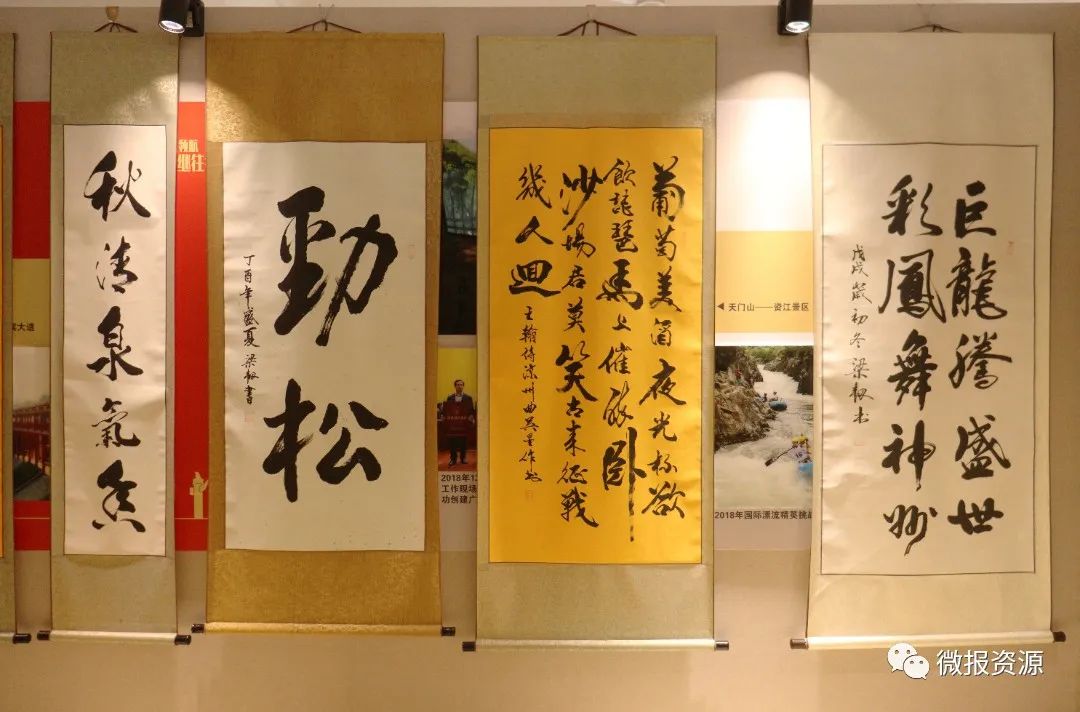 秋清泉氣香
领航
继往
大道
勁松
丁酉年盛夏 梁書
2018年12
工作现场
功创建广
葡萄美酒夜光杯欲
飲琵琶馬上催醉卧
沙場君莫笑古来征戰
幾人迴
王翰詩涼州曲
◀ 天门山——资江景区
2018年国际漂流精英挑战
巨龍騰盛世
彩鳳舞神妙
戊戌歲初冬 梁书
微报资源